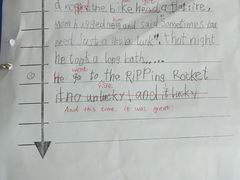 the bike head a flat tire,
hugged and said "Sometimes
need just a little luck". that night
he took a long bath.....
He go went to the RiPPing Rocket
no unlucky and it lucky
And this time, it was great.